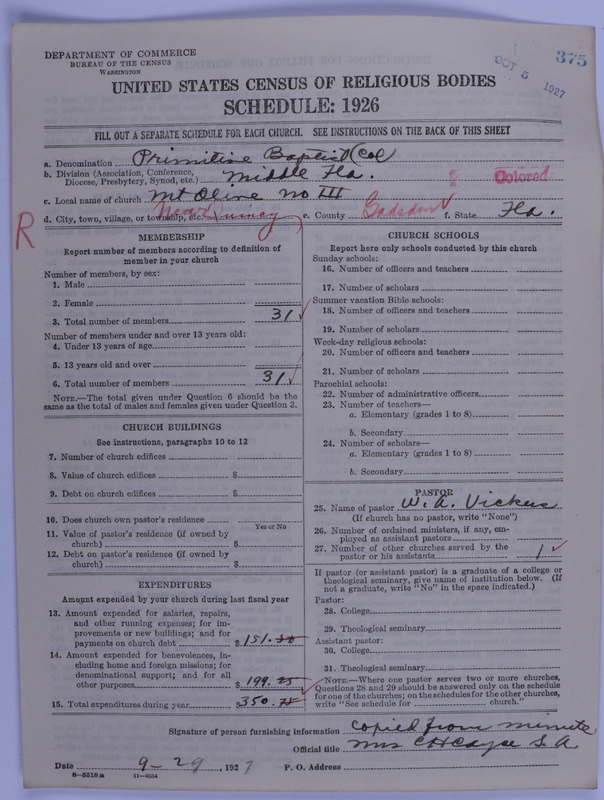 DEPARTMENT OF COMMERCE
BUREAU OF THE CENSUS
WASHINGTON
375
OCT 5 1927
UNITED STATES CENSUS OF RELIGIOUS BODIES
SCHEDULE: 1926
FILL OUT A SEPARATE SCHEDULE FOR EACH CHURCH. SEE INSTRUCTIONS ON THE BACK OF THIS SHEET
a. Denomination Primitive Baptist (Col
b. Division (Association, Conference, Diocese, Presbytery, Synod, etc.) Middle Fla.
Colored
c. Local name of church Mt Olive No III
d. City, town, village, or township, etc. Near Quincy e. County Gadsden f. State Fla.
R
MEMBERSHIP
Report number of members according to definition of
member in your church
Number of members, by sex:
1. Male
2. Female
3. Total number of members 31
Number of members under and over 13 years old:
4. Under 13 years of age
5. 13 years old and over
6. Total number of members 31
NOTE.—The total given under Question 6 should be the
same as the total of males and females given under Question 3.
CHURCH BUILDINGS
See instructions, paragraphs 10 to 12
7. Number of church edifices
8. Value of church edifices $
9. Debt on church edifices $
10. Does church own pastor's residence
Yes or No
11. Value of pastor's residence (if owned by
church) $
12. Debt on pastor's residence (if owned by
church) $
EXPENDITURES
Amount expended by your church during last fiscal year
13. Amount expended for salaries, repairs,
and other running expenses; for im-
provements or new buildings; and for
payments on church debt $ 151.50
14. Amount expended for benevolences, in-
cluding home and foreign missions; for
denominational support; and for all
other purposes $ 199.25
15. Total expenditures during year $ 350.75
CHURCH SCHOOLS
Report here only schools conducted by this church
Sunday schools:
16. Number of officers and teachers
17. Number of scholars
Summer vacation Bible schools:
18. Number of officers and teachers
19. Number of scholars
Week-day religious schools:
20. Number of officers and teachers
21. Number of scholars
Parochial schools:
22. Number of administrative officers
23. Number of teachers—
a. Elementary (grades 1 to 8)
b. Secondary
24. Number of scholars—
a. Elementary (grades 1 to 8)
b. Secondary
PASTOR
25. Name of pastor W. A. Vickers
(If church has no pastor, write "None")
26. Number of ordained ministers, if any, em-
ployed as assistant pastors
27. Number of other churches served by the
pastor or his assistants 1
If pastor (or assistant pastor) is a graduate of a college or
theological seminary, give name of institution below. (If
not a graduate, write "No" in the space indicated.)
Pastor:
28. College
29. Theological seminary
Assistant pastor:
30. College
31. Theological seminary
NOTE.—Where one pastor serves two or more churches,
Questions 28 and 29 should be answered only on the schedule
for one of the churches; on the schedules for the other churches,
write "See schedule for church."
Signature of person furnishing information Copied from minute
Official title Mrs S. A
Date 9-29, 1927 P. O. Address
8-5518a 11-9554